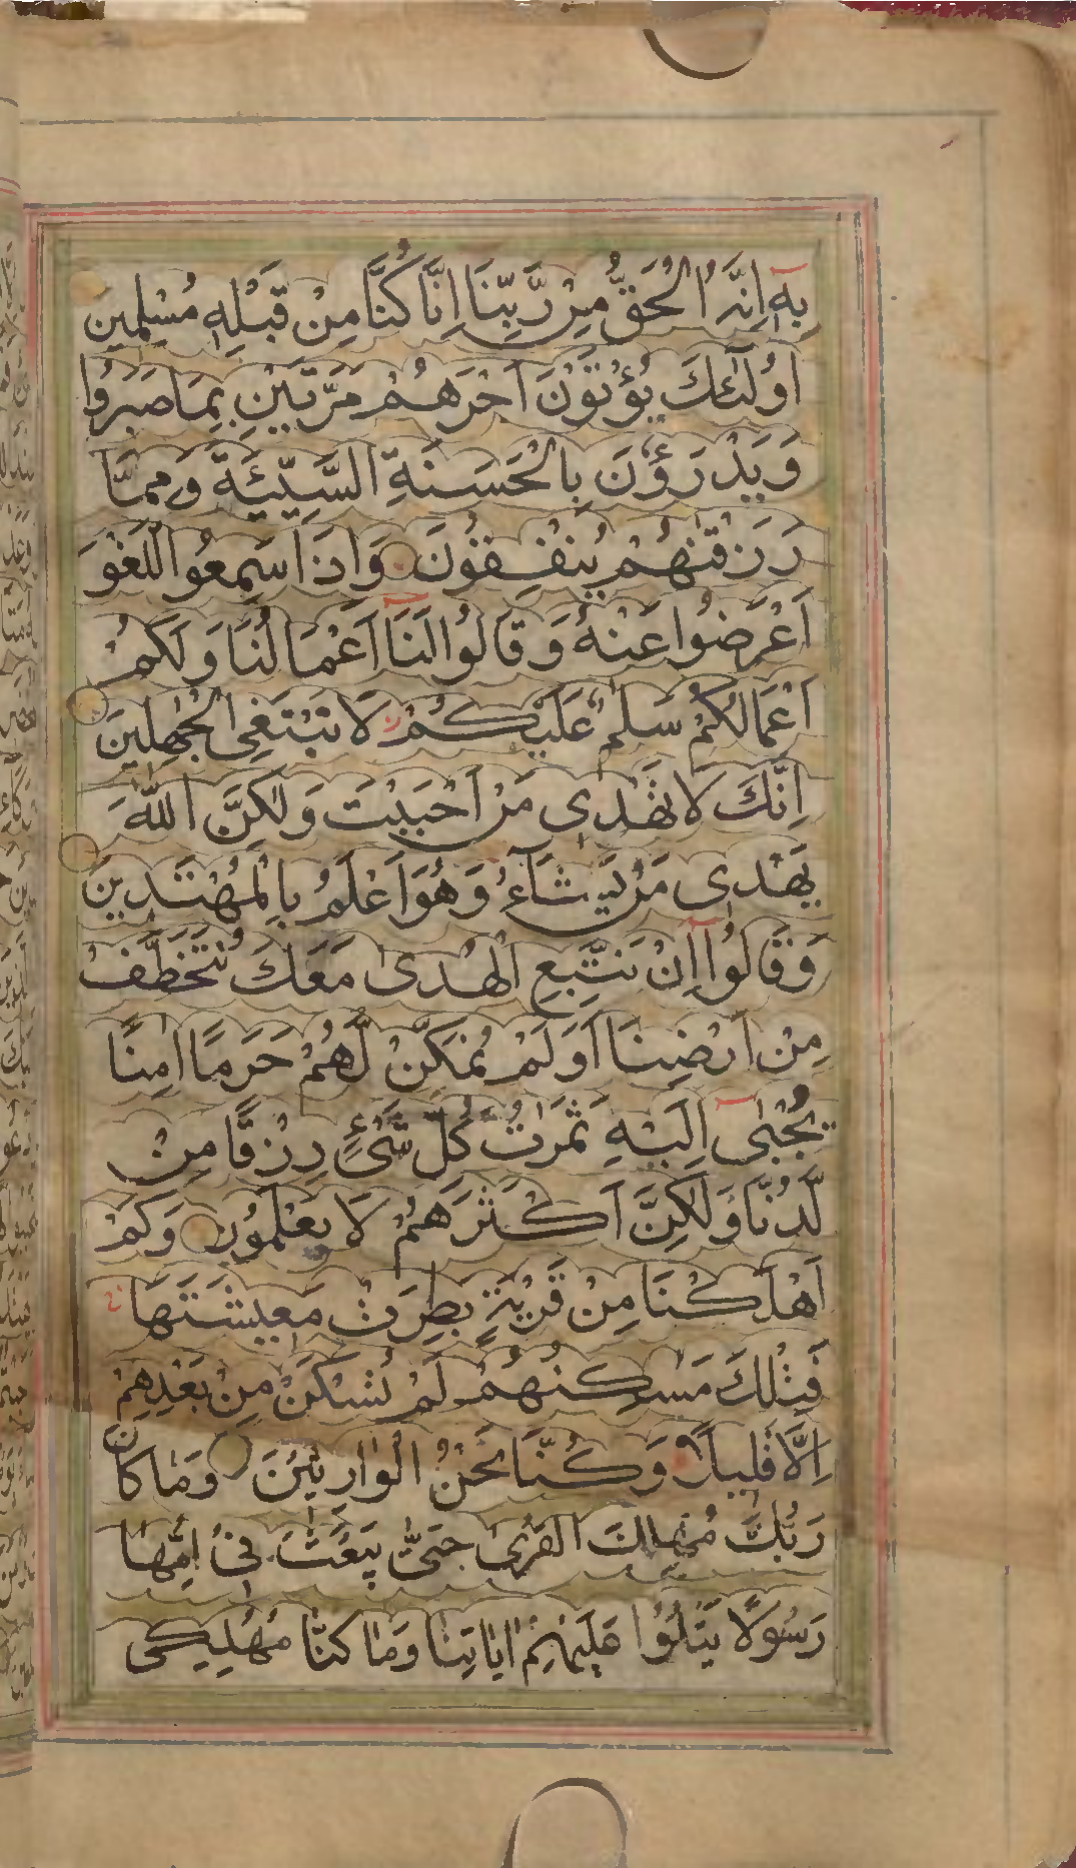 بِهٖٓ اِنَّهُ الْحَقُّ مِنْ رَّبِّنَا اِنَّا كُنَّا مِنْ قَبْلِهٖ مُسْلِمِين
اُولٰٓئِكَ يُؤْتَوْنَ اَجْرَهُمْ مَرَّتَيْنِ بِمَا صَبَرُوا
وَيَدْرَؤُنَ بِالْحَسَنَةِ السَّيِّئَةَ وَمِمَّا
رَزَقْنٰهُمْ يُنْفِقُوْنَ وَاِذَا سَمِعُوا اللَّغْوَ
اَعْرَضُوا عَنْهُ وَقَالُوا لَنَآ اَعْمَالُنَا وَلَكُمْ
اَعْمَالُكُمْ سَلٰمٌ عَلَيْكُمْ لَا نَبْتَغِى الْجٰهِلِيْنَ
اِنَّكَ لَا تَهْدِى مَنْ اَحْبَبْتَ وَلٰكِنَّ اللّٰهَ
يَهْدِى مَنْ يَّشَآءُ وَهُوَ اَعْلَمُ بِالْمُهْتَدِيْنَ
وَقَالُوْآ اِنْ نَتَّبِعِ الْهُدٰى مَعَكَ نُتَخَطَّفْ
مِنْ اَرْضِنَا اَوَلَمْ نُمَكِّنْ لَّهُمْ حَرَمًا اٰمِنًا
يُّجْبٰٓى اِلَيْهِ ثَمَرٰتُ كُلِّ شَىْءٍ رِزْقًا مِنْ
لَّدُنَّا وَلٰكِنَّ اَكْثَرَهُمْ لَا يَعْلَمُوْن وَكَمْ
اَهْلَكْنَا مِنْ قَرْيَةٍ بَطِرَتْ مَعِيْشَتَهَا
فَتِلْكَ مَسٰكِنُهُمْ لَمْ تُسْكَنْ مِنْ بَعْدِهِمْ
اِلَّا قَلِيلًا وَكُنَّا نَحْنُ الْوَارِثِيْنَ وَمَا كَانَ
رَبُّكَ مُهْلِكَ الْقُرٰى حَتّٰى يَبْعَثَ فِىْ اُمِّهَا
رَسُوْلًا يَتْلُوْا عَلَيْهِمْ اٰيَاتِنَا وَمَا كُنَّا مُهْلِكِى